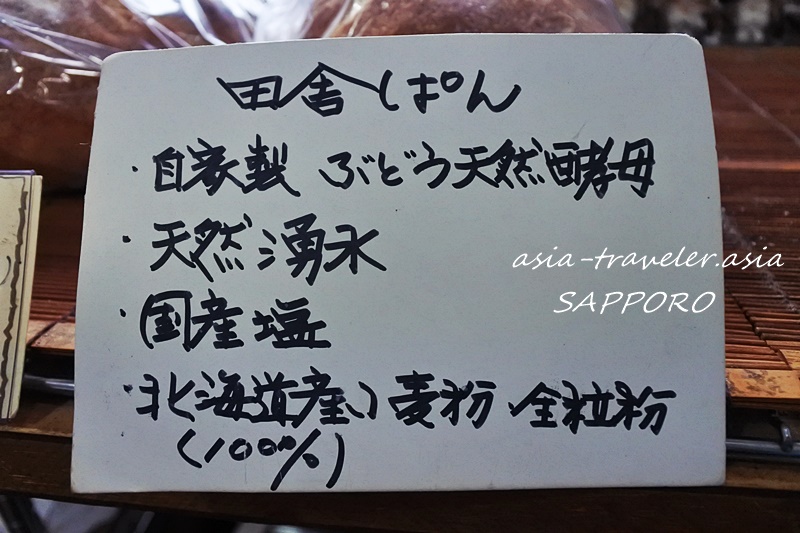 田舎ぱん
・自家製 ぶどう天然酵母
・天然湧水
・国産塩
・北海道産小麦粉 全粒粉
(100%)
asia-traveler.asia
SAPPORO